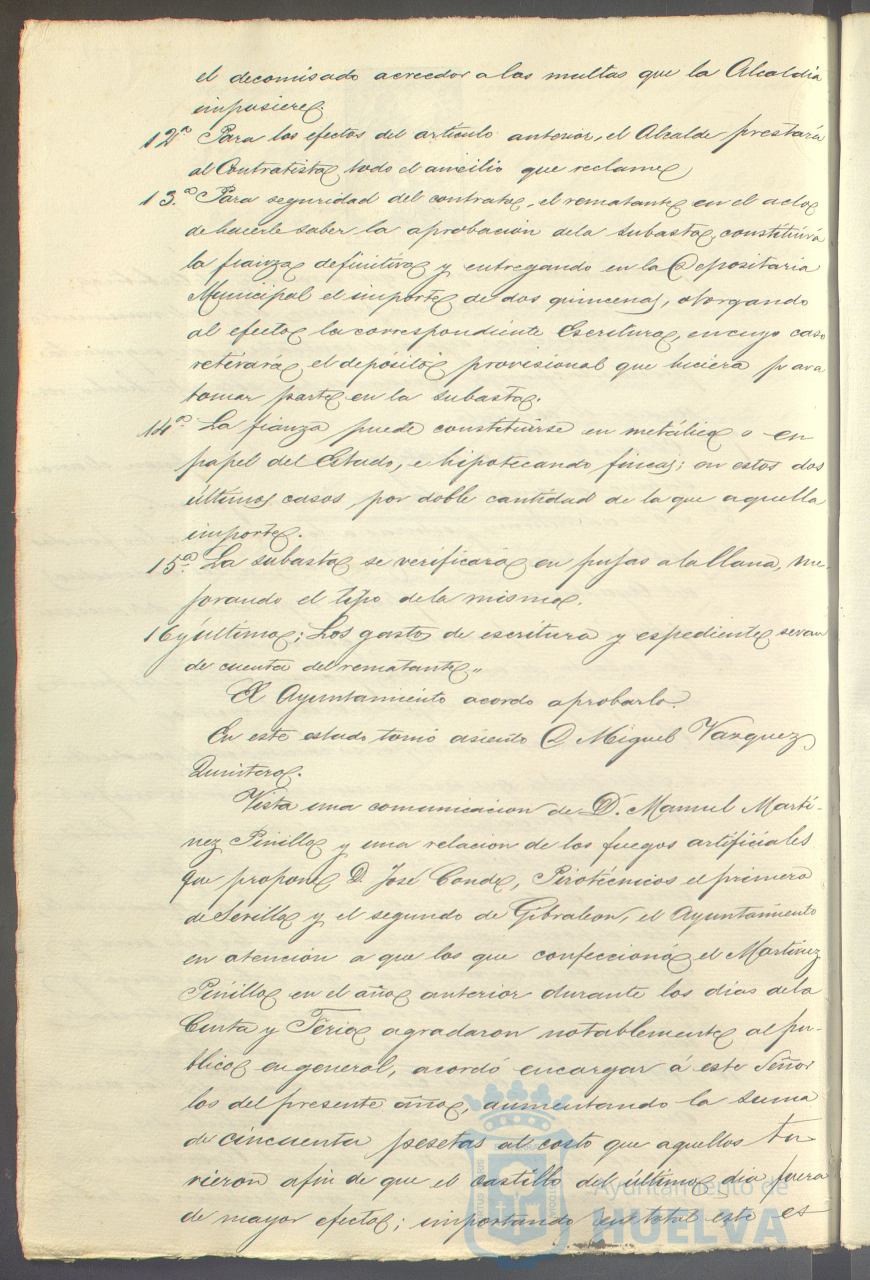 el decomisado acreedor a las multas que la Alcaldia
impusiere.
12ª Para los efectos del articulo anterior, el Alcalde prestará
al Contratista todo el aucilio que reclame
13.ª Para seguridad del contrato, el rematante en el acto
de hacerle saber la aprobación dela subasta, constituirá
la fianza definitiva y entregando en la Depositaria
Municipal el importe de dos quincenas, otorgando
al efecto la correspondiente Escritura, en cuyo caso
retirará el depósito provisional que hiciera para
tomar parte en la subasta.
14ª La fianza puede constituirse en metálico o en
papel del Estado, e hipotecando fincas; en estos dos
últimos casos por doble cantidad de la que aquella
importe.
15ª La subasta se verificará en pujas a la llana, me-
jorando el tipo dela misma.
16 y última; Los gastos de escritura y espediente seran
de cuenta del rematante„
El Ayuntamiento acordo aprobarlo.
En este estado tomó asiento D Miguel Vazquez
Quintero.
Vista una comunicacion de D. Manuel Marti-
nez Pinillo y una relacion de los fuegos artificiales
que propone D. José Conde, Pirotécnicos el primero
de Sevilla y el segundo de Gibraleon, el Ayuntamiento
en atención a que los que confeccionó el Martinez
Pinillo en el año anterior durante los dias dela
Cinta y Feria agradaron notablemente al pu-
blico en general, acordó encargar á este Señor
los del presente año, aumentando la suma
de cincuenta pesetas al costo que aquellos tu-
vieron afin de que el castillo del último dia fuera
de mayor efecto; importando en total este es
Ayuntamiento de
HUELVA